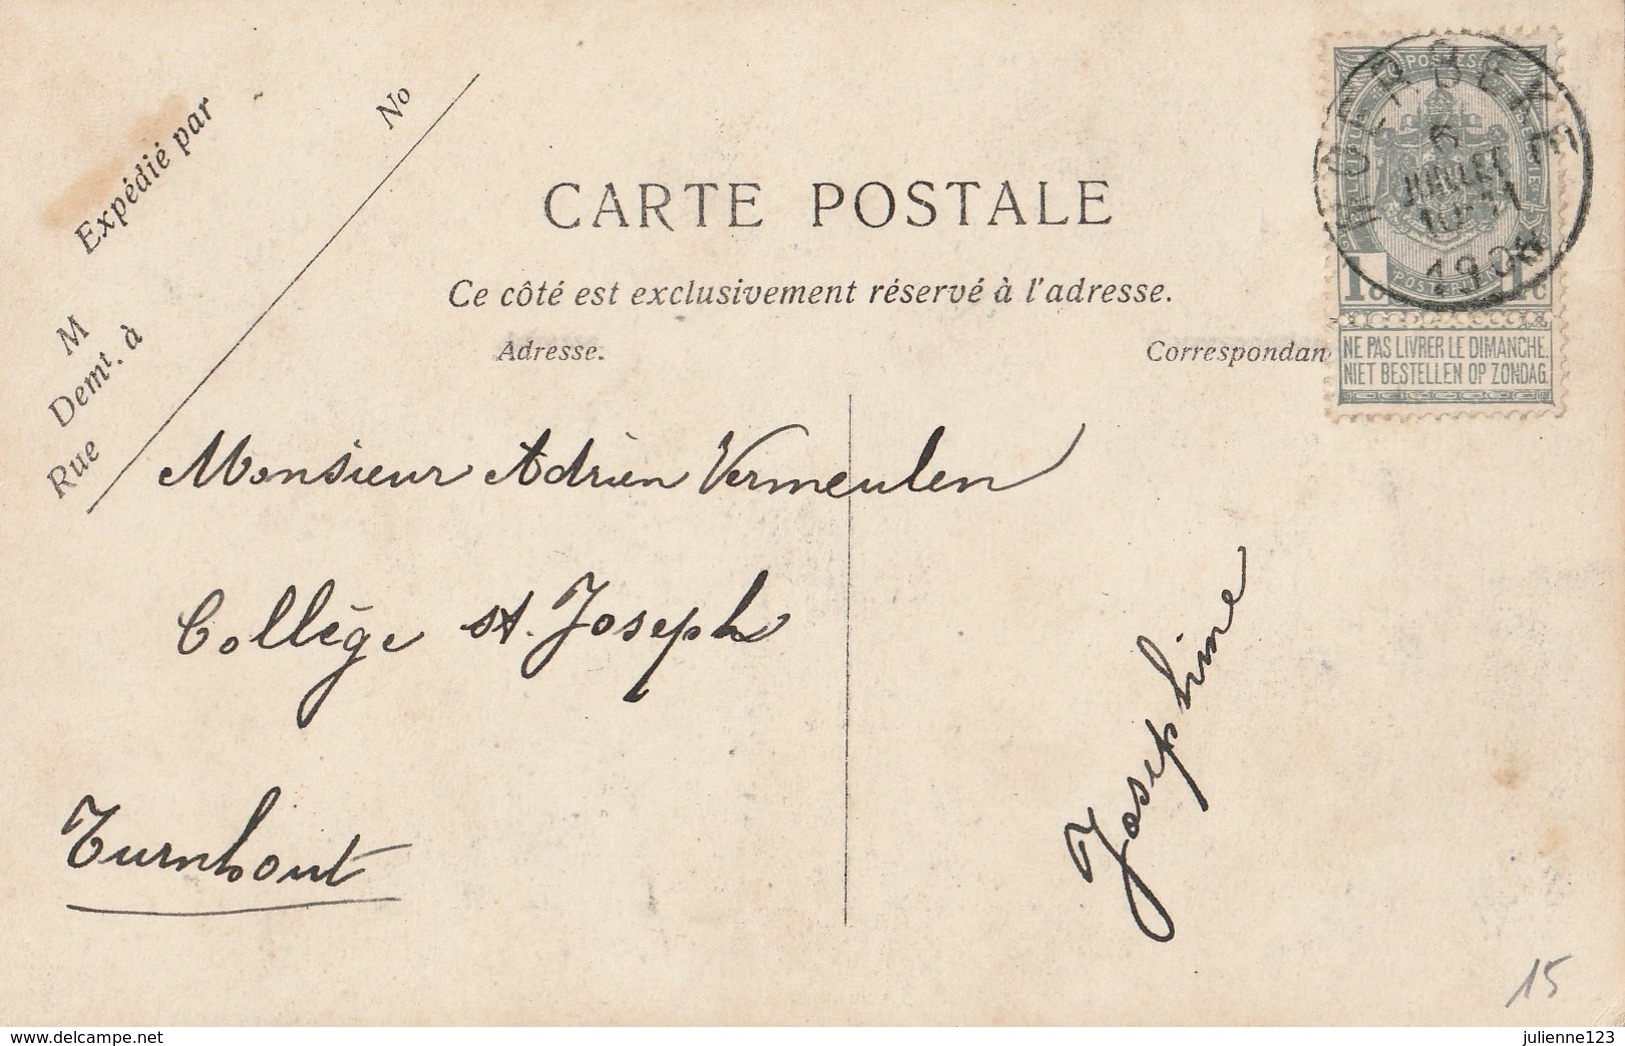 Expédié par
No
M
Demt. à
Rue
CARTE POSTALE
Ce côté est exclusivement réservé à l'adresse.
Adresse.
Correspondan
MOERBEKE
6
JUILLET
10-11
1908
POSTES
1c 1c
NE PAS LIVRER LE DIMANCHE.
NIET BESTELLEN OP ZONDAG.
Monsieur Adrien Vermeulen
Collège st. Joseph
Turnhout
Josephine
15
delcampe.net
julienne123